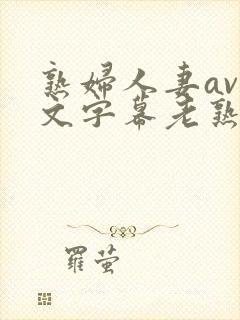 熟婦人妻av
文字幕老熟
羅萤